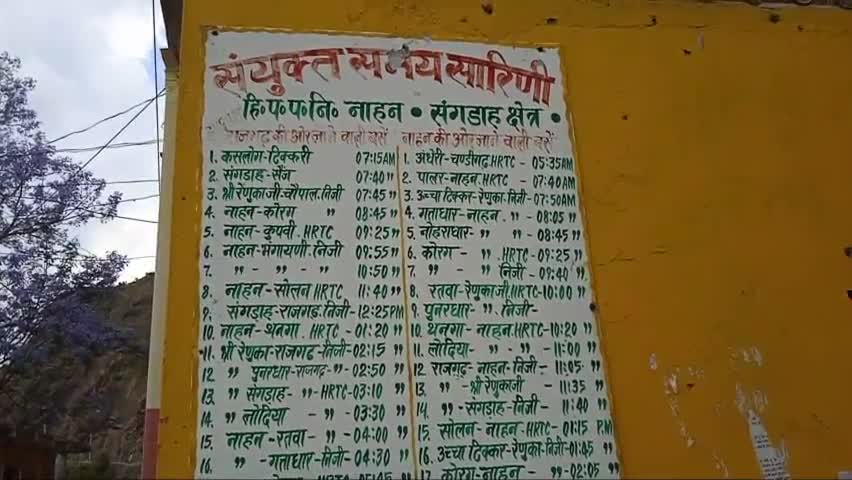 संयुक्त समय सारिणी
हि॰प॰प॰नि॰ नाहन • संगडाह क्षेत्र •
राजगढ़ की ओर जाने वाली बसें
1. कसलोग-टिक्करी 07:15AM
2. संगडाह-सैंज 07:40 "
3. श्री रेणुका जी-चौपाल.निजी 07:45 "
4. नाहन-कोरग " 08:45 "
5. नाहन-कुपवी.HRTC 09:25 "
6. नाहन-भंगायणी.निजी 09:55 "
7. " - " - " 10:50 "
8. नाहन-सोलन HRTC 11:40 "
9. संगडाह-राजगढ़.निजी-12:25PM
10. नाहन-थनगा.HRTC-01:20 "
11. श्री रेणुका-राजगढ़-निजी-02:15 "
12 " पुनरधार-राजगढ़-" -02:50 "
13 " संगडाह- "-HRTC-03:10 "
14. " लोदिया - " - " 03:30 "
15. नाहन-रतवा- " -04:00 "
16. " -गताधार-निजी-04:30 "
नाहन की ओर जाने वाली बसें
1. अंधेरी-चण्डीगढ़.HRTC-05:35AM
2. पालर-नाहन.HRTC - 07:40AM
3. उच्चा टिक्कर-रेणुका-निजी-07:50AM
4. गताधार-नाहन. " - 08:05 "
5. नोहराधार- " " -08:45 "
6. कोरग - " .HRTC-09:25 "
7. " - " निजी-09:40 "
8. रतवा-रेणुकाजी.HRTC-10:00 "
9. पुनरधार- " . निजी-
10. थनगा-नाहन.HRTC-10:20 "
11. लोदिया- " - " - 11:00 "
12. राजगढ़-नाहन-निजी-11:05 "
13. " -श्री रेणुकाजी - 11:35 "
14. " -संगडाह-निजी- 11:40 "
15. सोलन-नाहन-HRTC-01:15 P.M
16. उच्चा टिक्कर-रेणुका-निजी-01:45 "
17. कोरग-नाहन - " -02:05 "